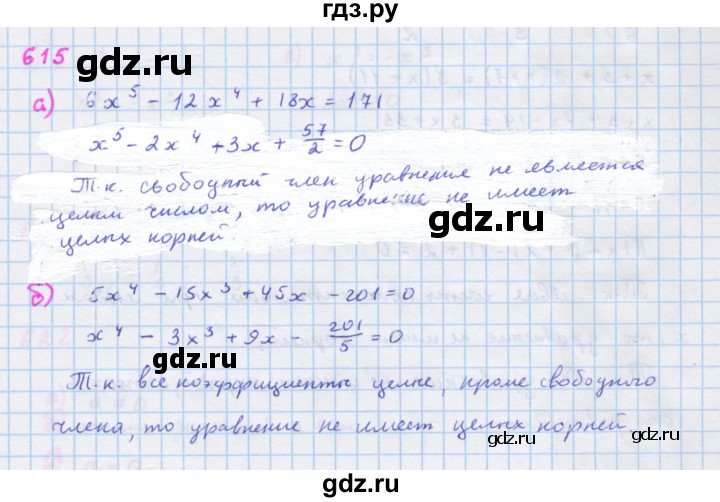 гдз.ру
615
gdz.ru
а) 6x⁵ - 12x⁴ + 18x = 171
x⁵ - 2x⁴ + 3x + 57/2 = 0
Т.к. свободный член уравнения не является
целым числом, то уравнение не имеет
целых корней.
gdz.ru
б) 5x⁴ - 15x³ + 45x - 201 = 0
x⁴ - 3x³ + 9x - 201/5 = 0
gdz.ru
Т.к. все коэффициенты целые, кроме свободного
члена, то уравнение не имеет целых корней.
gdz.ru
gdz.ru